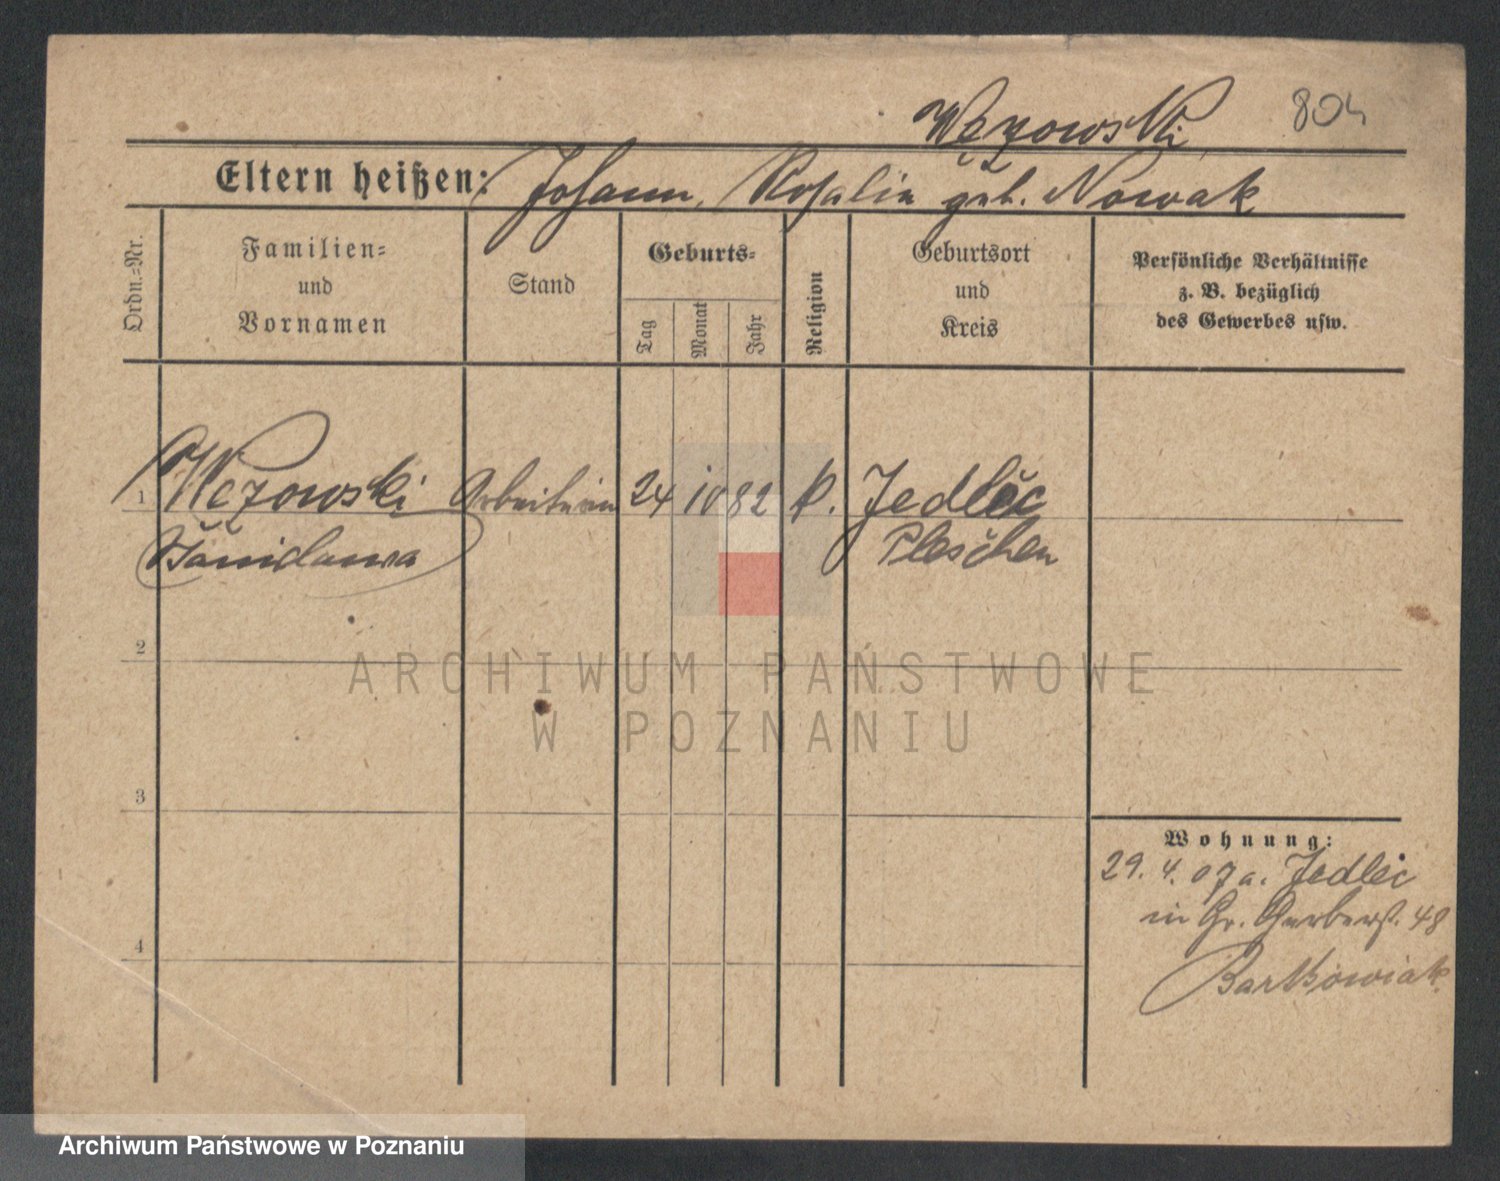 Wężowski 804
Eltern heißen: Johann, Rosalie geb. Nowak
Ordn.=Nr.
Familien=
und
Vornamen
Stand
Geburts=
Tag
Monat
Jahr
Religion
Geburtsort
und
Kreis
Persönliche Verhältnisse
z. B. bezüglich
des Gewerbes usw.
1 Wężowski Arbeiterin 24 10 82 k. Jedlec
Stanislawa Pleschen
2
ARCHIWUM PAŃSTWOWE
W POZNANIU
3
Wohnung:
29. 4. 07 a. Jedlec
in Gr. Gerberst. 48
4
Bartkowiak
Archiwum Państwowe w Poznaniu